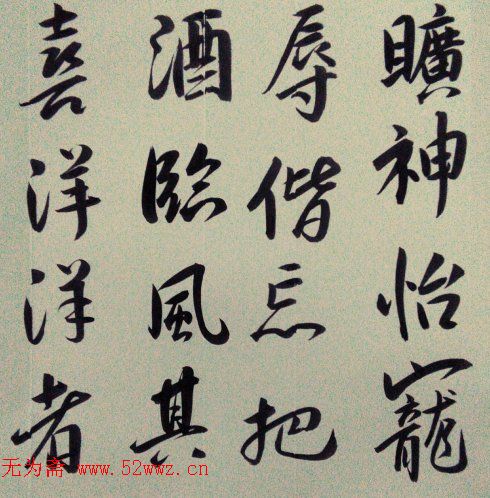 曠神怡寵
辱偕忘把
酒臨風其
喜洋洋者
无为斋 www.52wwz.cn